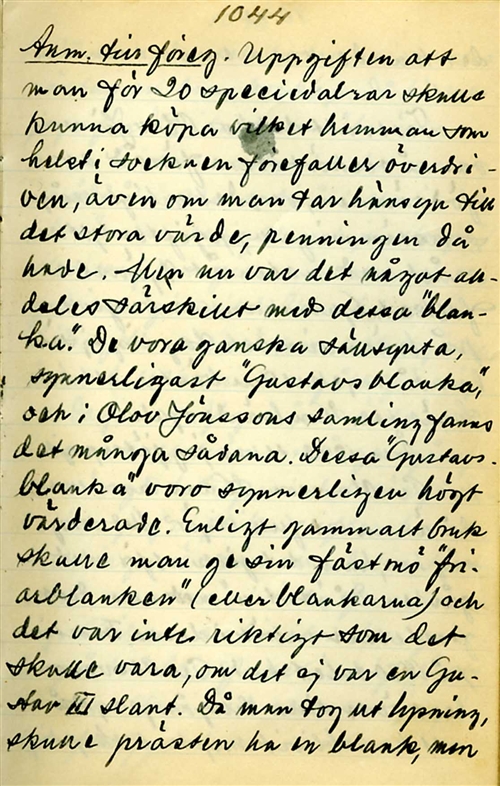 1044
Anm. till föreg. Uppgiften att
man för 20 speciedalrar skulle
kunna köpa vilket hemman som
helst i socknen förefaller överdri-
ven, även om man tar hänsyn till
det stora värde, penningen då
hade. Men nu var det något all-
deles särskilt med dessa "blan-
ka". De voro ganska sällsynta,
synnerligast "Gustavsblanka",
och i Olov Jönssons samling fanns
det många sådana. Dessa "Gustavs-
blanka" voro synnerligen högt
värderade. Enligt gammalt bruk
skulle man ge sin fästmö "fri-
arblanken" (eller blankarna) och
det var inte riktigt som det
skulle vara, om det ej var en Gu-
stav III slant. Då man tog ut lysning,
skulle prästen ha en blank, men